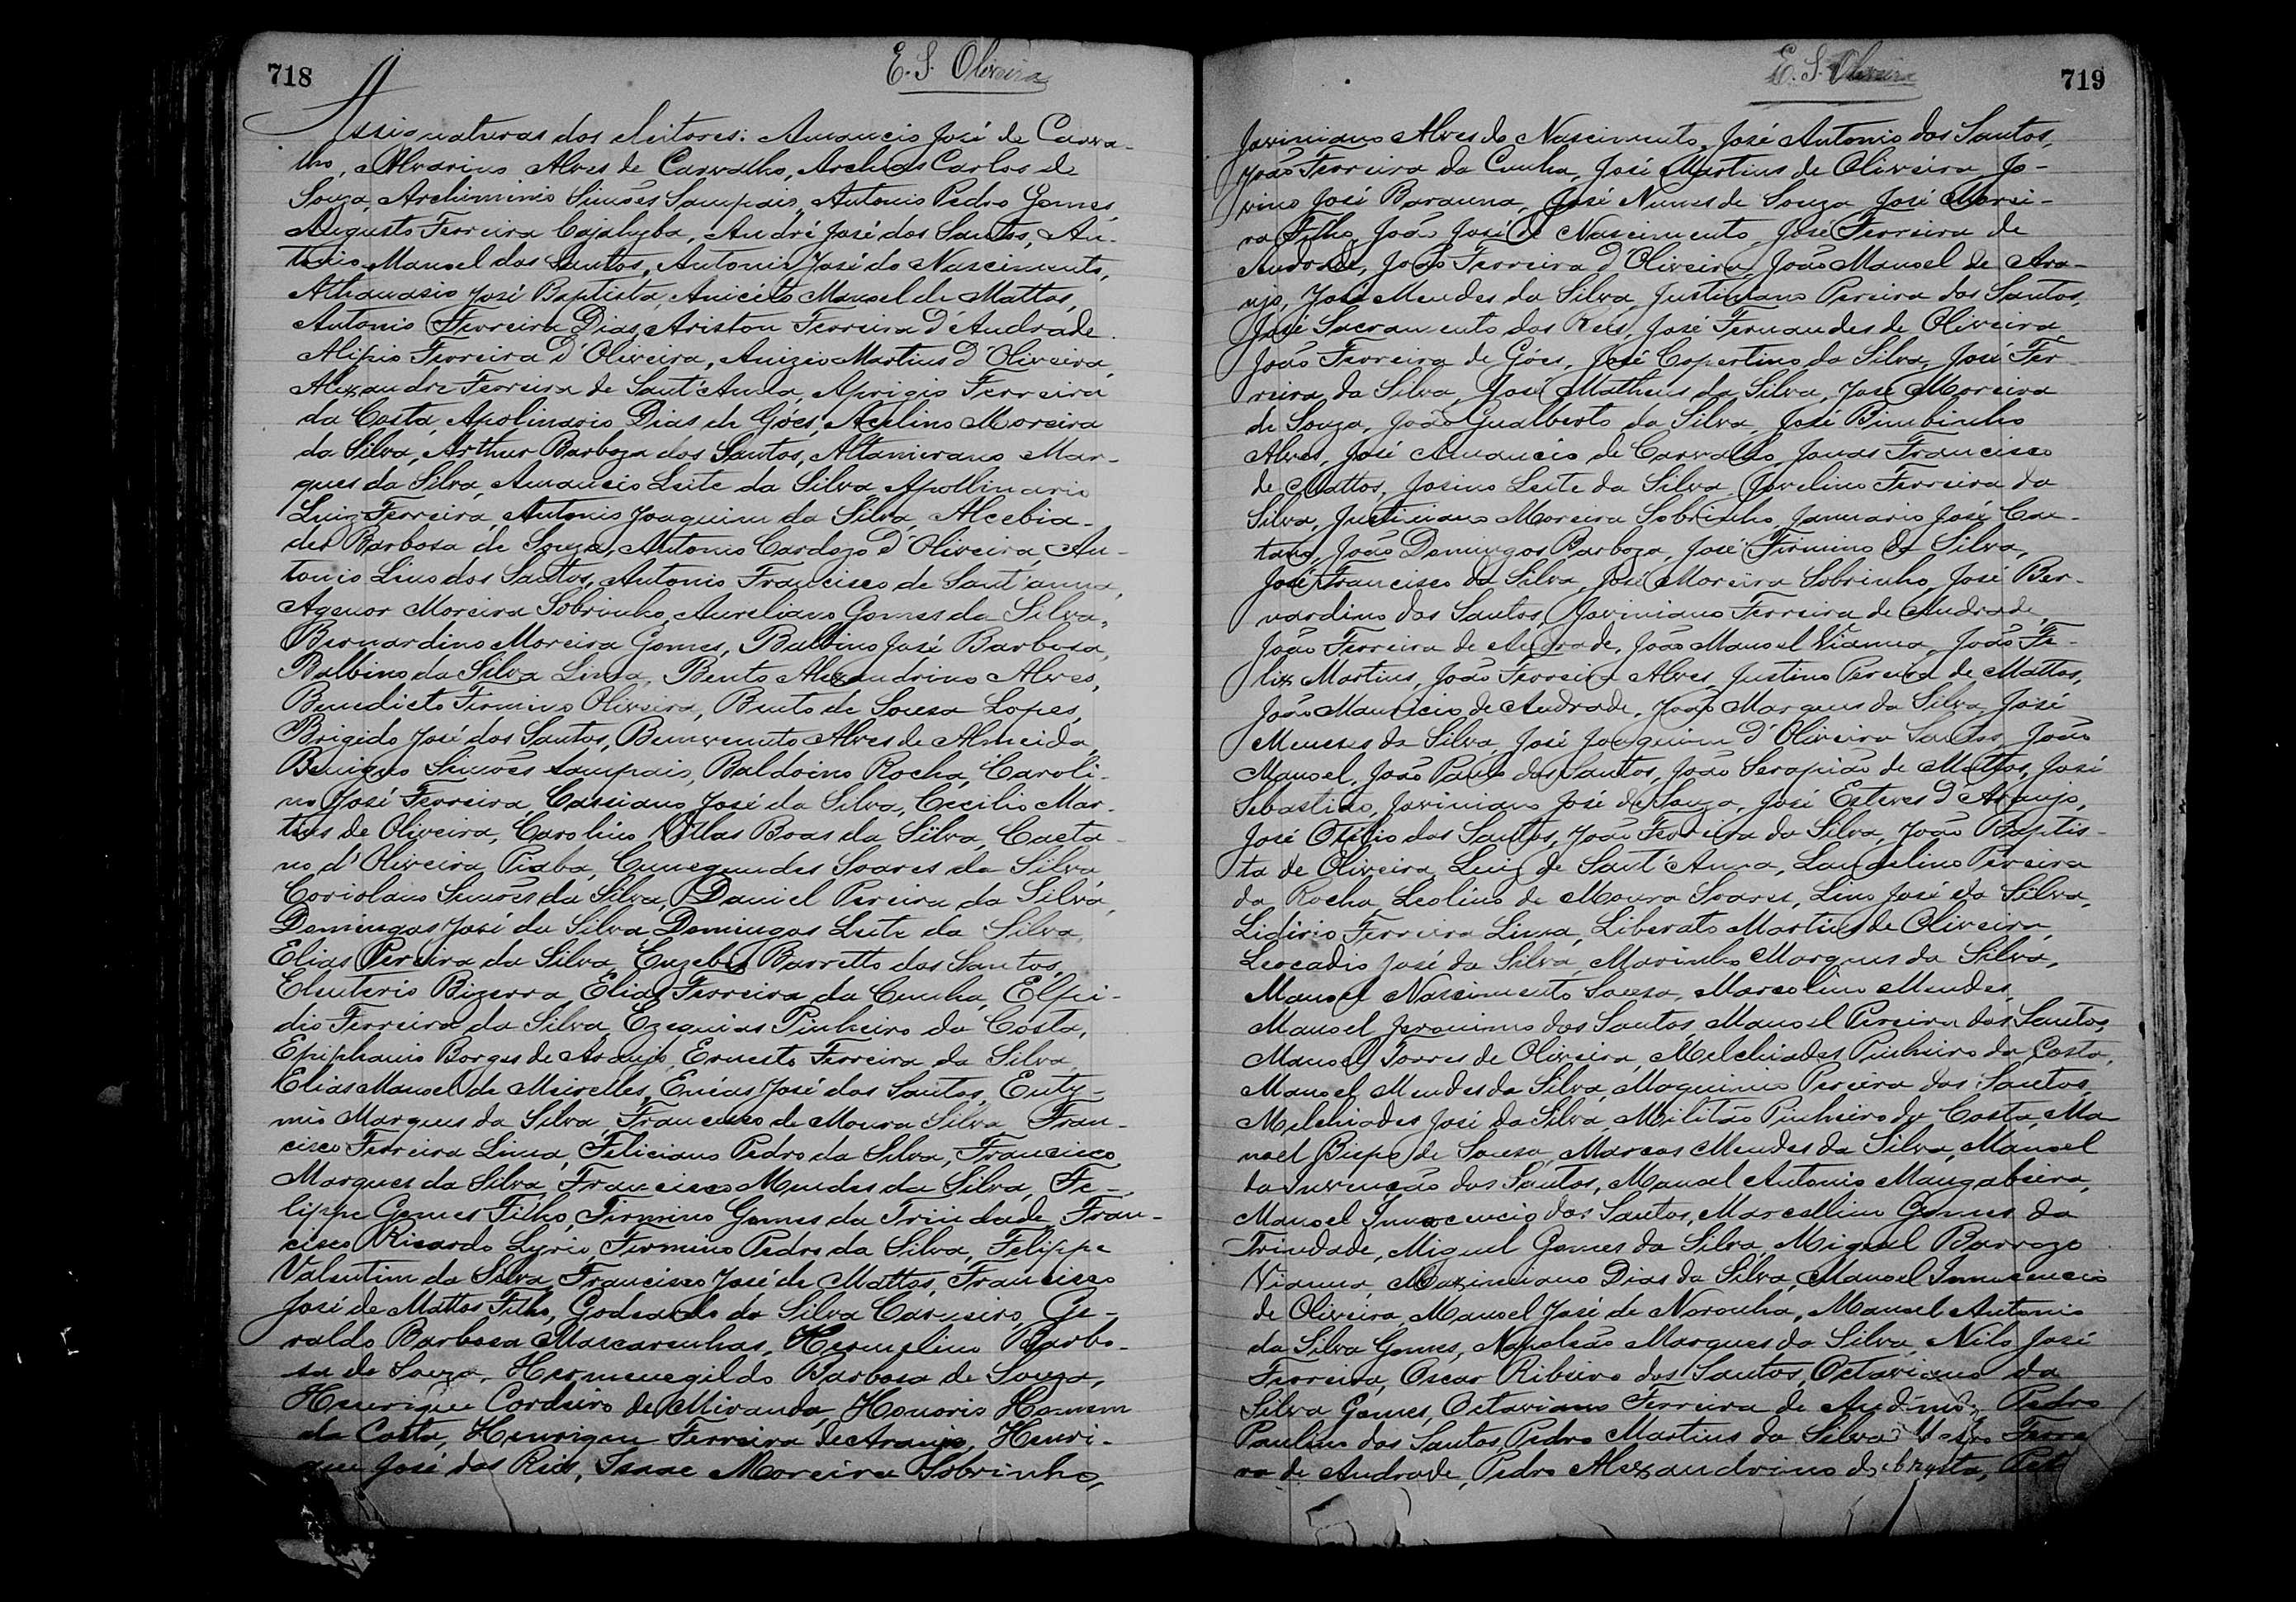 718
E. S. Oliveira
Assignaturas dos eleitores: Amancio José de Carva-
lho, Alvarino Alves de Carvalho, Archias Carlos de
Souza, Archiminio Simões Sampaio, Antonio Pedro Gomes,
Augusto Ferreira Cajahyba, André José dos Santos, An-
tonio Manoel dos Santos, Antonio José do Nascimento,
Athanasio José Baptista, Aniceto Manoel de Mattos,
Antonio Ferreira Dias, Ariston Ferreira d'Andrade
Alipio Ferreira d'Oliveira, Anizio Martins d'Oliveira,
Alexandre Ferreira de Sant'Anna, Aprigio Ferreira
da Costa, Apolinario Dias de Góes, Acelino Moreira
da Silva, Arthur Barboza dos Santos, Altamirano Mar-
ques da Silva, Amancio Leite da Silva Apollinario
Luiz Ferreira, Antonio Joaquim da Silva, Alcebia-
des Barbosa de Souza, Antonio Cardozo d'Oliveira, An-
tonio Lino dos Santos, Antonio Francisco de Sant'anna,
Agenor Moreira Sobrinho, Aureliano Gomes da Silva,
Bernardino Moreira Gomes, Balbino José Barbosa,
Balbino da Silva Lima, Bento Alexandrino Alves,
Benedicto Firmino Oliveira, Bento de Souza Lopes,
Brigido José dos Santos, Benvenuto Alves de Almeida,
Benigno Simões Sampaio, Baldoino Rocha, Caroli-
no José Ferreira, Cassiano José da Silva, Cecilio Mar-
tins de Oliveira, Carolino Villas Boas da Silva, Caeta-
no d'Oliveira Piaba, Cunegundes Soares da Silva
Coriolano Simões da Silva, Daniel Pereira da Silva,
Domingos José da Silva Domingos Leite da Silva,
Elias Pereira da Silva, Euzebio Barretto dos Santos,
Eleuterio Bizerra, Elias Ferreira da Cunha, Elpi-
dio Ferreira da Silva, Ezequias Pinheiro da Costa,
Epiphanio Borges de Araujo, Ernesto Ferreira da Silva,
Elias Manoel de Meirelles, Enéas José dos Santos, Euty-
mio Marques da Silva, Francisco de Moura Silva, Fran-
cisco Ferreira Lima, Feliciano Pedro da Silva, Francisco
Marques da Silva, Francisco Mendes da Silva, Fe-
lippe Gomes Filho, Firmino Gomes da Trindade, Fran-
cisco Ricardo Lyrio, Firmino Pedro da Silva, Felippe
Valentim da Silva, Francisco José de Mattos, Francisco
José de Mattos Filho, Godeardo da Silva Carneiro, Ge-
raldo Barbosa Mascarenhas, Hermelino Barbo-
sa de Souza, Hermenegildo Barbosa de Souza,
Henrique Cordeiro de Miranda, Honorio Homem
da Costa, Henrique Ferreira de Araujo, Henri-
que José dos Reis, Isaac Moreira Sobrinho,
719
E. S. Oliveira
Joviniano Alves do Nascimento, José Antonio dos Santos,
João Ferreira da Cunha, José Martins de Oliveira, Jo-
vino José Barauna, José Nunes de Souza, José Morei-
ra Filho, João José do Nascimento, José Ferreira de
Andrade, João Ferreira d'Oliveira, João Manoel de Ara-
ujo, José Mendes da Silva, Justiniano Pereira dos Santos,
José Sacramento dos Reis, José Fernandes de Oliveira
João Ferreira de Góes, José Copertino da Silva, José Fer-
reira da Silva, José Matheus da Silva, José Moreira
de Souza, João Gualberto da Silva, José Bimbinho
Alves, José Amancio de Carvalho, Jonas Francisco
de Mattos, Josino Leite da Silva, Jovelino Ferreira da
Silva, Justiniano Moreira Sobrinho, Januario José Cae-
tano, João Domingos Barboza, José Firmino da Silva,
José Francisco da Silva, José Moreira Sobrinho, José Ber-
nardino dos Santos, Joviniano Ferreira de Andrade,
João Ferreira de Andrade, João Manoel Vianna, João Fe-
lix Martins, João Ferreira Alves, Justino Pereira de Mattos,
João Mauricio de Andrade, João Marques da Silva, José
Meneses da Silva, José Joaquim d'Oliveira Santos, João
Manoel, João Paulo dos Santos, João Serapião de Mattos, José
Sebastião, Joviniano José de Souza, José Esteves d'Araujo,
José Otilio dos Santos, João Ferreira da Silva, João Baptis-
ta de Oliveira, Luiz de Sant'Anna, Laudelino Pereira
da Rocha, Leolino de Moura Soares, Lino José da Silva,
Lidirio Ferreira Lima, Liberato Martins de Oliveira,
Leocadio José da Silva, Marinho Marques da Silva,
Manoel Nascimento Souza, Marcolino Mendes,
Manoel Jeronimo dos Santos, Manoel Pereira dos Santos,
Manoel Torres de Oliveira, Melchiades Pinheiro da Costa,
Manoel Mendes da Silva, Maquinio Pereira dos Santos,
Melchiades José da Silva, Militão Pinheiro da Costa, Ma
noel Bispo de Souza, Marcos Mendes da Silva, Manoel
da Invenção dos Santos, Manoel Antonio Mangabeira,
Manoel Innocencio dos Santos, Marcellino Gomes da
Trindade, Miguel Gomes da Silva, Miguel Barrozo
Vianna, Maximiano Dias da Silva, Manoel Innocencio
de Oliveira, Manoel José de Noronha, Manoel Antonio
da Silva Gomes, Napoleão Marques da Silva, Nilo José
Ferreira, Oscar Ribeiro dos Santos, Octaviano da
Silva Gomes, Octaviano Ferreira de Pedro
Paulino dos Santos, Pedro Martins da Silva,
ra de Andrade, Pedro Alexandrino